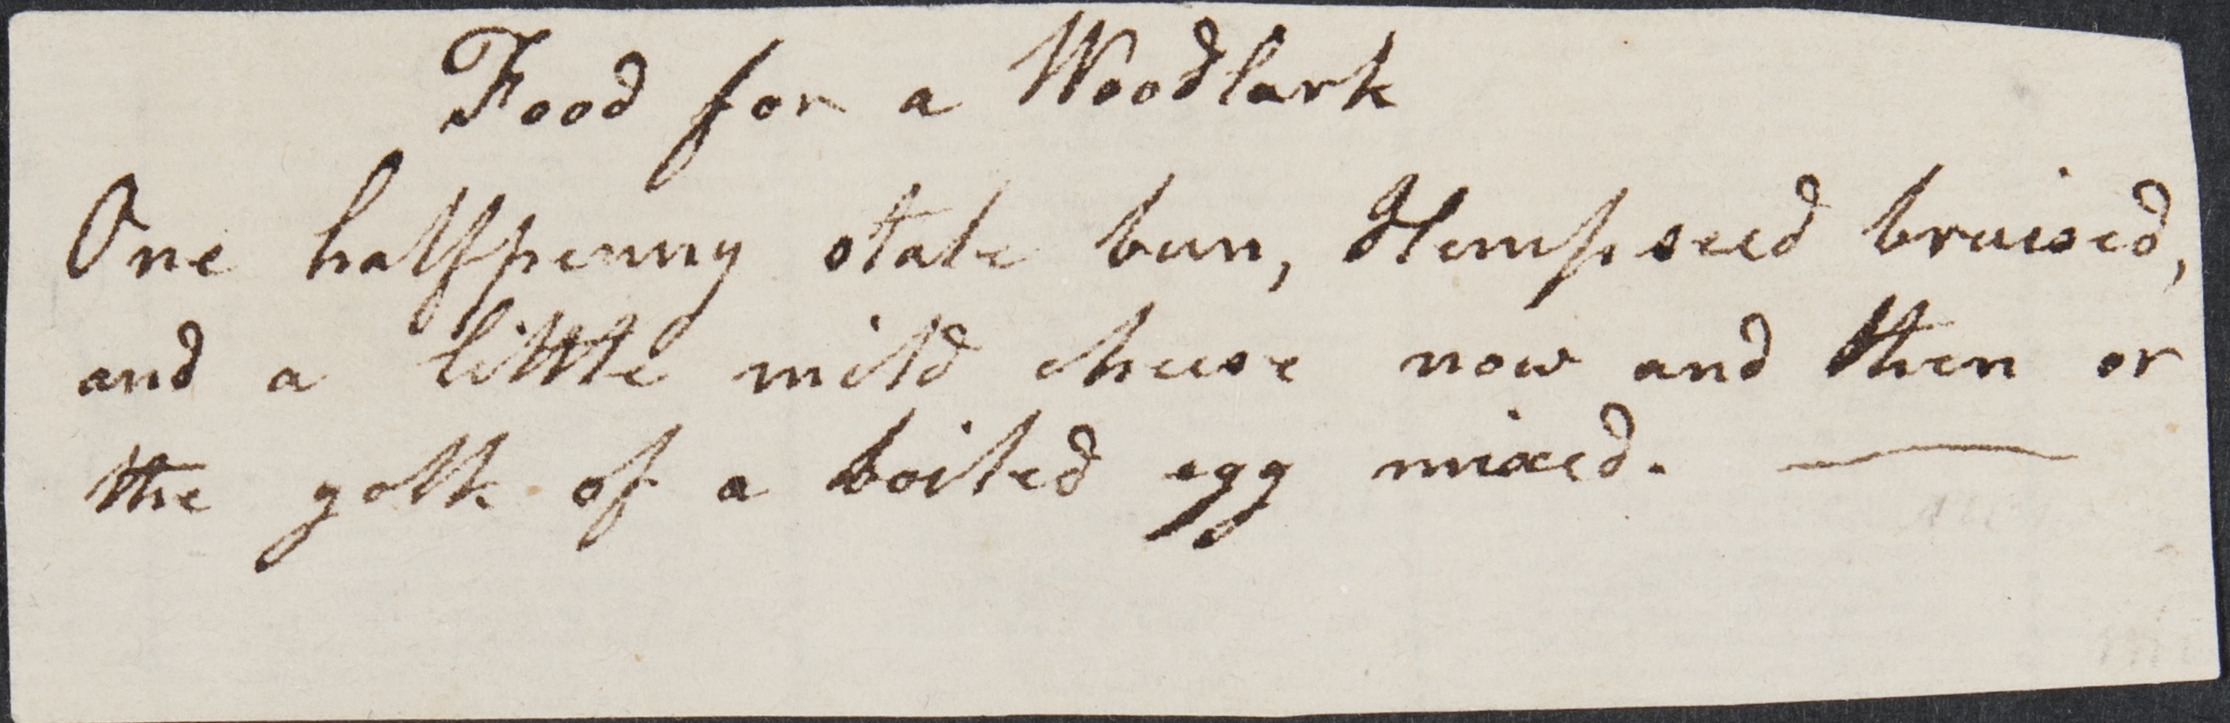 Food for a Woodlark
One halfpenny stale bun, Hempseed bruised,
and a little mild cheese now and then or
the yolk of a boiled egg mixed.